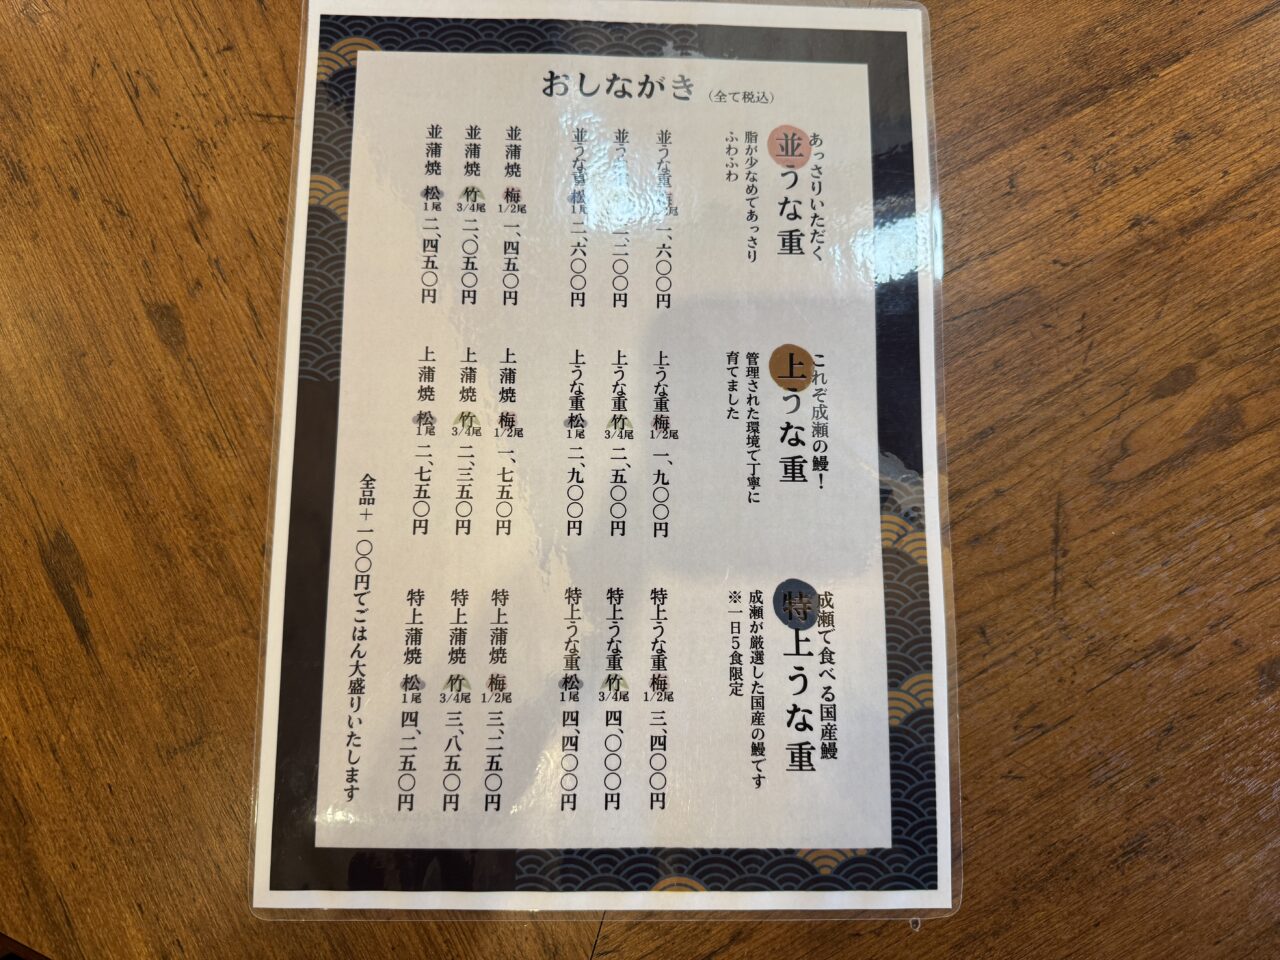 おしながき（全て税込）
あっさりいただく
並うな重
脂が少なめであっさり
ふわふわ
並うな重 梅 1/2尾 一、六〇〇円
並う 二、二〇〇円
並うな重 松 1尾 二、六〇〇円
並蒲焼 梅 1/2尾 一、四五〇円
並蒲焼 竹 3/4尾 二、〇五〇円
並蒲焼 松 1尾 二、四五〇円
これぞ成瀬の鰻！
上うな重
管理された環境で丁寧に
育てました
上うな重 梅 1/2尾 一、九〇〇円
上うな重 竹 3/4尾 二、五〇〇円
上うな重 松 1尾 二、九〇〇円
上蒲焼 梅 1/2尾 一、七五〇円
上蒲焼 竹 3/4尾 二、三五〇円
上蒲焼 松 1尾 二、七五〇円
成瀬で食べる国産鰻
特上うな重
成瀬が厳選した国産の鰻です
※一日5食限定
特上うな重 梅 1/2尾 三、四〇〇円
特上うな重 竹 3/4尾 四、〇〇〇円
特上うな重 松 1尾 四、四〇〇円
特上蒲焼 梅 1/2尾 三、二五〇円
特上蒲焼 竹 3/4尾 三、八五〇円
特上蒲焼 松 1尾 四、二五〇円
全品＋一〇〇円でごはん大盛りいたします